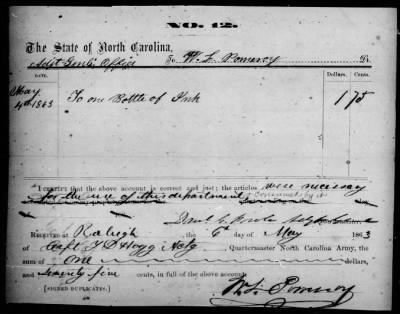 NO. 12.
The State of North Carolina,
Adjt Genls Office To W. L. Pomeroy Dr.
DATE. Dollars. Cents.
May
4th 1863 To one Bottle of Ink 1 75
I CERTIFY that the above account is correct and just; the articles were necessary
for the use of this department
Danl G. Fowle Adjt
RECEIVED AT Raleigh the 6 of May 1863
of Capt T D Hogg Quartermaster North Carolina Army, the
sum of One dollars,
and Seventy five cents, in full of the above account.
[SIGNED DUPLICATES.] W. L. Pomeroy